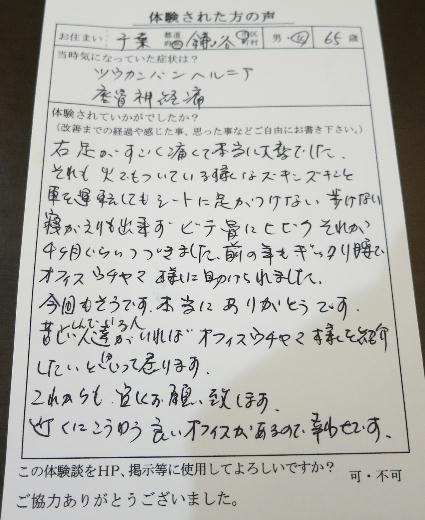 体験された方の声
お住まい: 千葉 都道府県 鎌ヶ谷 市区町村 男・女 65 歳
当時気になっていた症状は?
ツウカンバンヘルニア
座骨神経痛
体験されていかがでしたか?
(改善までの経過や感じた事、思った事などご自由にお書き下さい。)
右足がすごく痛くて本当に大変でした、
それも火でもついている様にはズーキンズーキンと
車を運転してもシートに足がつけない 歩けない
寝がえりも出来ず ビテイ骨にヒビ それが
4ヶ月ぐらいつづきました、前の年もギックリ腰で
オフィスウチヤマ様に助けられました。
今回もそうです。本当にありがとうです。
苦しんでいる人達がいればオフィスウチヤマ様を紹介
したいと思って居ります。
これからも宜しくお願い致します。
近くにこうゆう良いオフィスがあるので幸わせです。
この体験談をHP、掲示等に使用してよろしいですか? 可・不可
ご協力ありがとうございました。